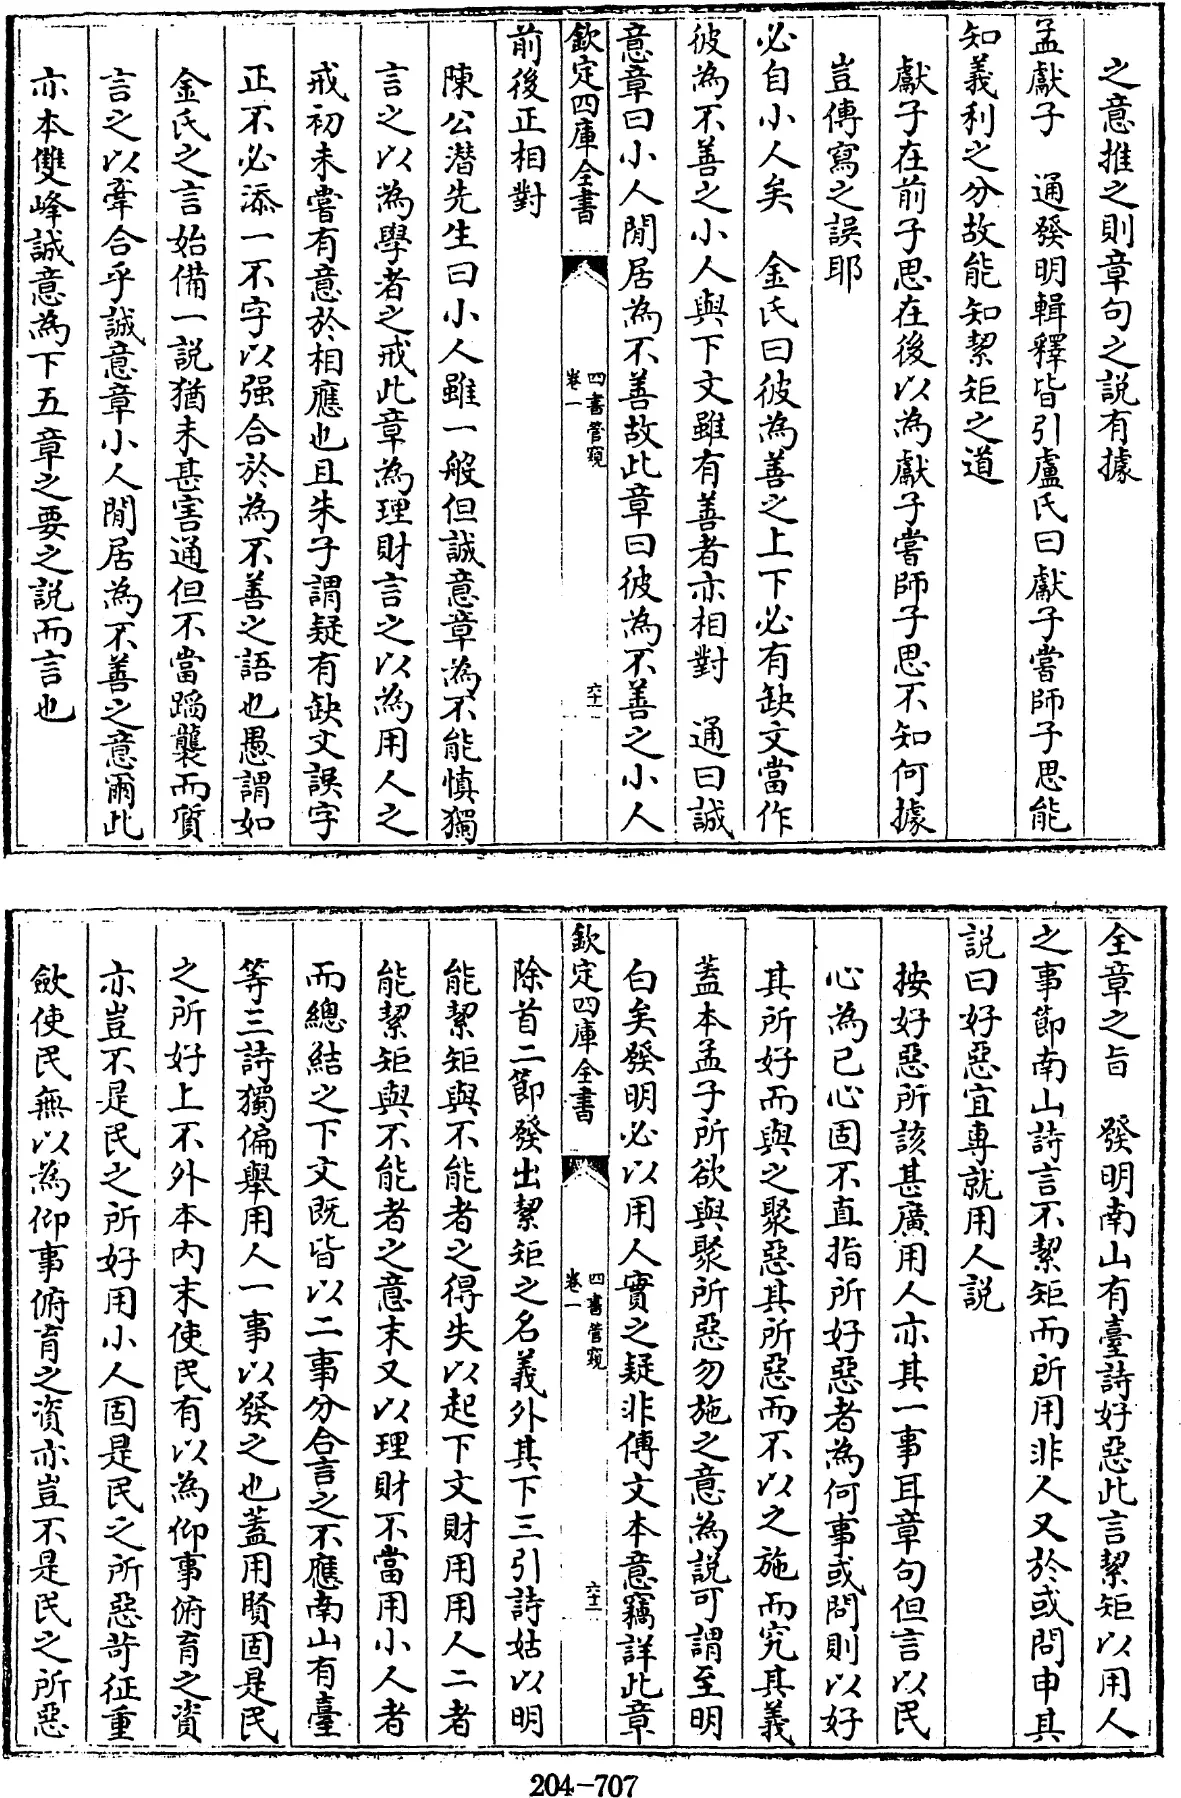 之意推之則章句之説有據
孟獻子　通發明輯釋皆引盧氏曰獻子嘗師子思能
知義利之分故能知絜矩之道
獻子在前子思在後以為獻子嘗師子思不知何據
豈傳寫之誤耶
必自小人矣　金氏曰彼為善之上下必有缺文當作
彼為不善之小人與下文雖有善者亦相對　通曰誠
意章曰小人閒居為不善故此章曰彼為不善之小人
欽定四庫全書
四書管窺
卷一
六十一
前後正相對
陳公潛先生曰小人雖一般但誠意章為不能慎獨
言之以為學者之戒此章為理財言之以為用人之
戒初未嘗有意於相應也且朱子謂疑有缺文誤字
正不必添一不字以强合於為不善之語也愚謂如
金氏之言始備一説猶未甚害通但不當蹈襲而質
言之以牽合乎誠意章小人閒居為不善之意爾此
亦本雙峰誠意為下五章之要之説而言也
全章之旨　發明南山有臺詩好惡此言絜矩以用人
之事節南山詩言不絜矩而所用非人又於或問申其
説曰好惡宜專就用人説
按好惡所該甚廣用人亦其一事耳章句但言以民
心為己心固不直指所好惡者為何事或問則以好
其所好而與之聚惡其所惡而不以之施而究其義
蓋本孟子所欲與聚所惡勿施之意為説可謂至明
白矣發明必以用人實之疑非傳文本意竊詳此章
欽定四庫全書
四書管窺
卷一
六十二
除首二節發出絜矩之名義外其下三引詩姑以明
能絜矩與不能者之得失以起下文財用用人二者
能絜矩與不能者之意末又以理財不當用小人者
而總結之下文既皆以二事分合言之不應南山有臺
等三詩獨偏舉用人一事以發之也蓋用賢固是民
之所好上不外本内末使民有以為仰事俯育之資
亦豈不是民之所好用小人固是民之所惡苛征重
斂使民無以為仰事俯育之資亦豈不是民之所惡
204-707